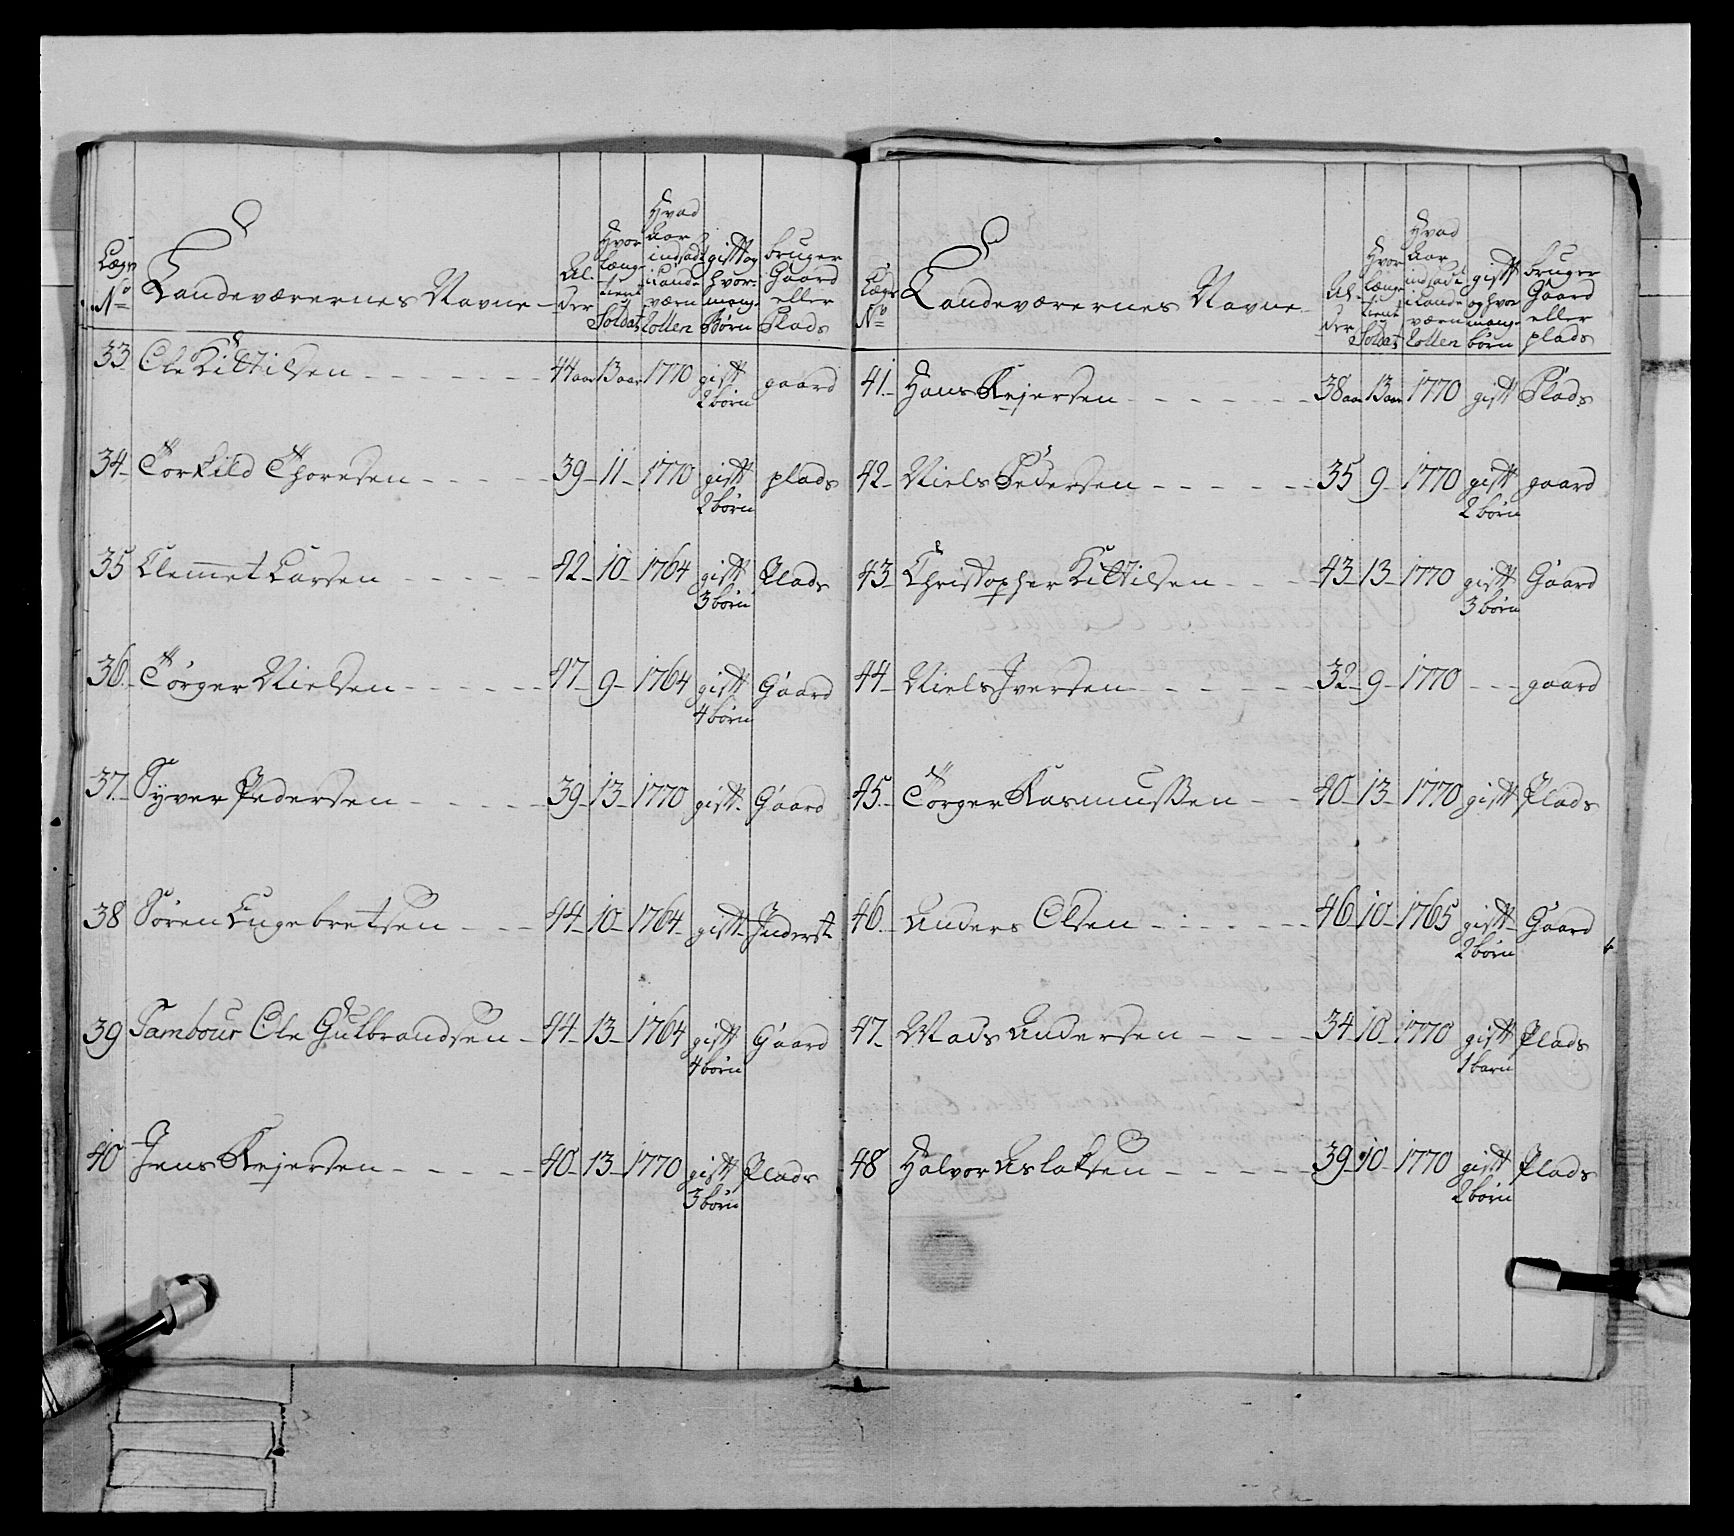 Lægs No Landeværernes Navne Al-der Hvor længe tient Soldat Hvad Aar indsadt i Landeværn Rollen gift og hvor mange Børn bruger Gaard eller Plads
33 Ole Kittilsen - - - - - 44 aar 13 aar 1770 gift 2 børn gaard
34 Torkild Thoresen - - - - - 39 11 1770 gift 2 børn plads
35 Clemet Larsen - - - - - 42 10 1764 gift 3 børn Plads
36 Törger Nielsen - - - - - - 47 9 1764 gift 4 børn Gaard
37 Syver Pedersen - - - - - 39 13 1770 gift Gaard
38 Sören Engebretsen - - - 44 10 1764 gift Inderst
39 Tambour Ole Gulbrandsen - 44 13 1764 gift 4 børn Gaard
40 Jens Rejersen - - - - - 40 13 1770 gift 3 børn Plads
Lægs No Landeværernes Navne Al-der Hvor længe tient Soldat Hvad Aar indsadt i Landeværn Rollen gift og hvor mange børn bruger Gaard eller plads
41 Hans Rejersen - - - - - - - 38 aar 13 aar 1770 gift Plads
42 Niels Pedersen - - - - - - 35 9 1770 gift 2 børn gaard
43 Christopher Kittilsen - - - 43 13 1770 gift 3 børn Gaard
44 Niels Iversen - - - - - - 32 9 1770 - - - gaard
45 Törger Rasmussen - - 40 13 1770 gift Plads
46 Anders Olsen - - - - - - 46 10 1765 gift 2 børn Gaard
47 Mads Andersen - - - - 34 10 1770 gift 1 barn Plads
48 Halvor Aslaksen - - - - - 39 10 1770 gift 2 børn Plads